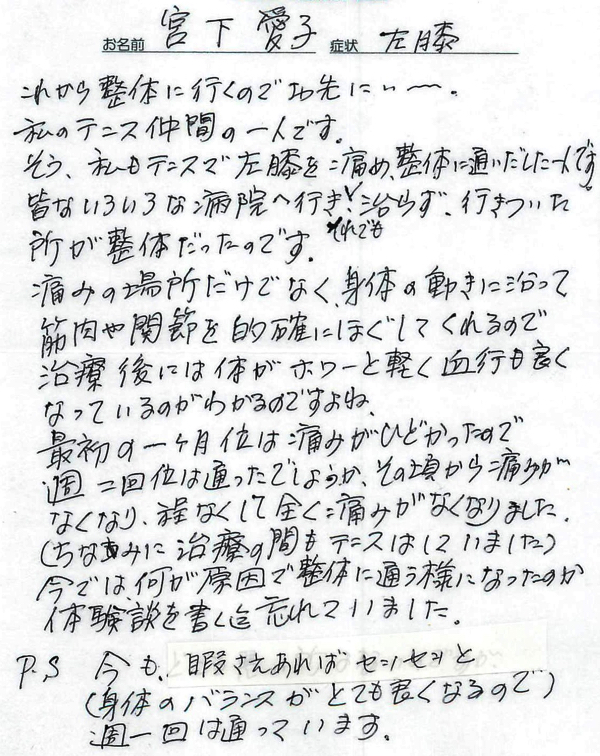 お名前 宮下愛子 症状 左膝
これから整体に行くのでお先にぃ〜。
私のテニス仲間の一人です。
そう、私もテニスで左膝を痛め、整体に通いだした一人です。
皆ないろいろな病院へ行き、それでも治らず、行きついた
所が整体だったのです。
痛みの場所だけでなく、身体の動きに沿って
筋肉や関節を的確にほぐしてくれるので
治療後には体がホワーと軽く血行も良く
なっているのがわかるのですよね、
最初の一ヶ月位は痛みがひどかったので
週二回位は通ったでしょうか、その頃から痛みが
なくなり、程なくして全く痛みがなくなりました。
(ちなみに治療の間もテニスはしていました)
今では、何が原因で整体に通う様になったのか
体験談を書く迄忘れていました。
P.S 今も、暇さえあればセッセッと
(身体のバランスがとても良くなるので)
週一回は通っています。